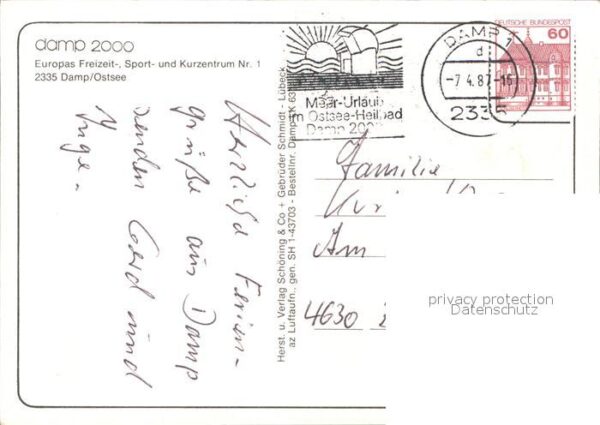 damp 2000
Europas Freizeit-, Sport- und Kurzentrum Nr. 1
2335 Damp/Ostsee
Herzliche Ferien-
grüße aus Damp
senden Gerd und
Inge.
Herst. u. Verlag Schöning & Co + Gebrüder Schmidt - Lübeck
az Luftaufn., gen. SH 1-43703 - Bestellnr. Damp K 63
Meer-Urlaub
im Ostsee-Heilbad
Damp 2000
DAMP 1
d
-7.4.87-16
2335
DEUTSCHE BUNDESPOST
60
Familie
Am
4630
privacy protection
Datenschutz